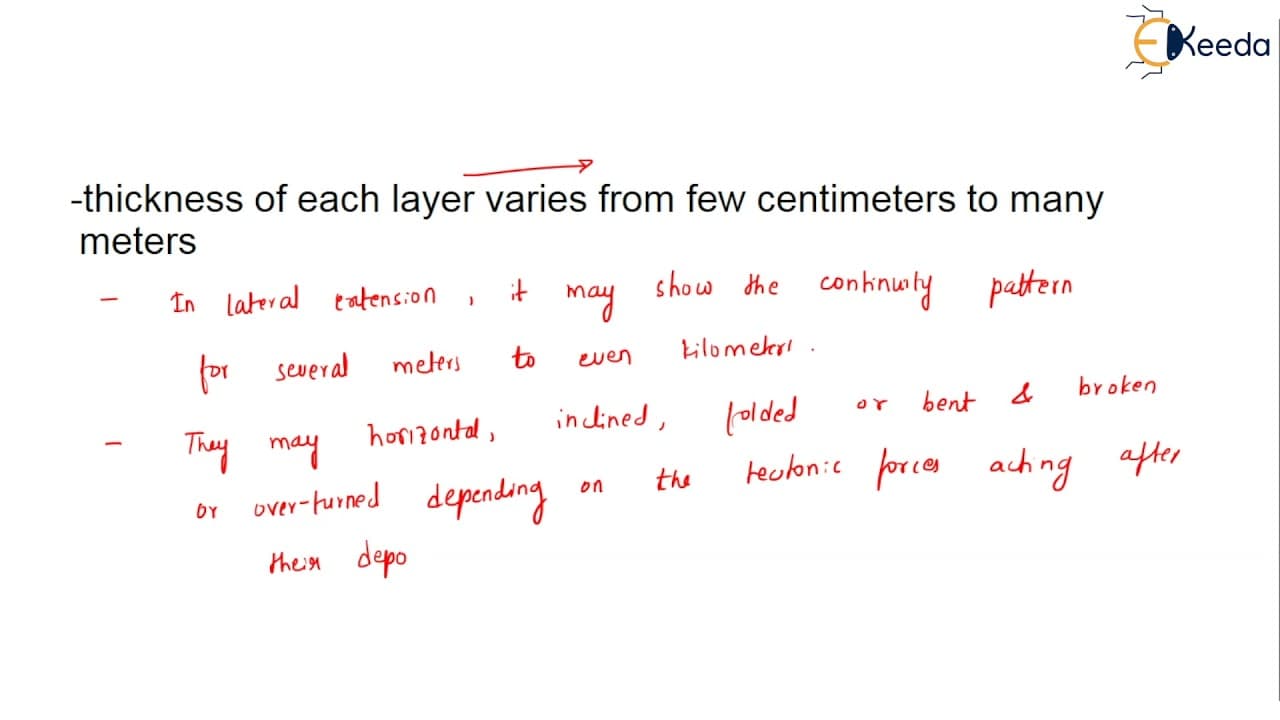 EKeeda
-thickness of each layer varies from few centimeters to many
meters
- In lateral extension, it may show the continuity pattern
for several meters to even kilometers.
- They may horizontal, inclined, folded or bent & broken
or over-turned depending on the tectonic forces acting after
their depo